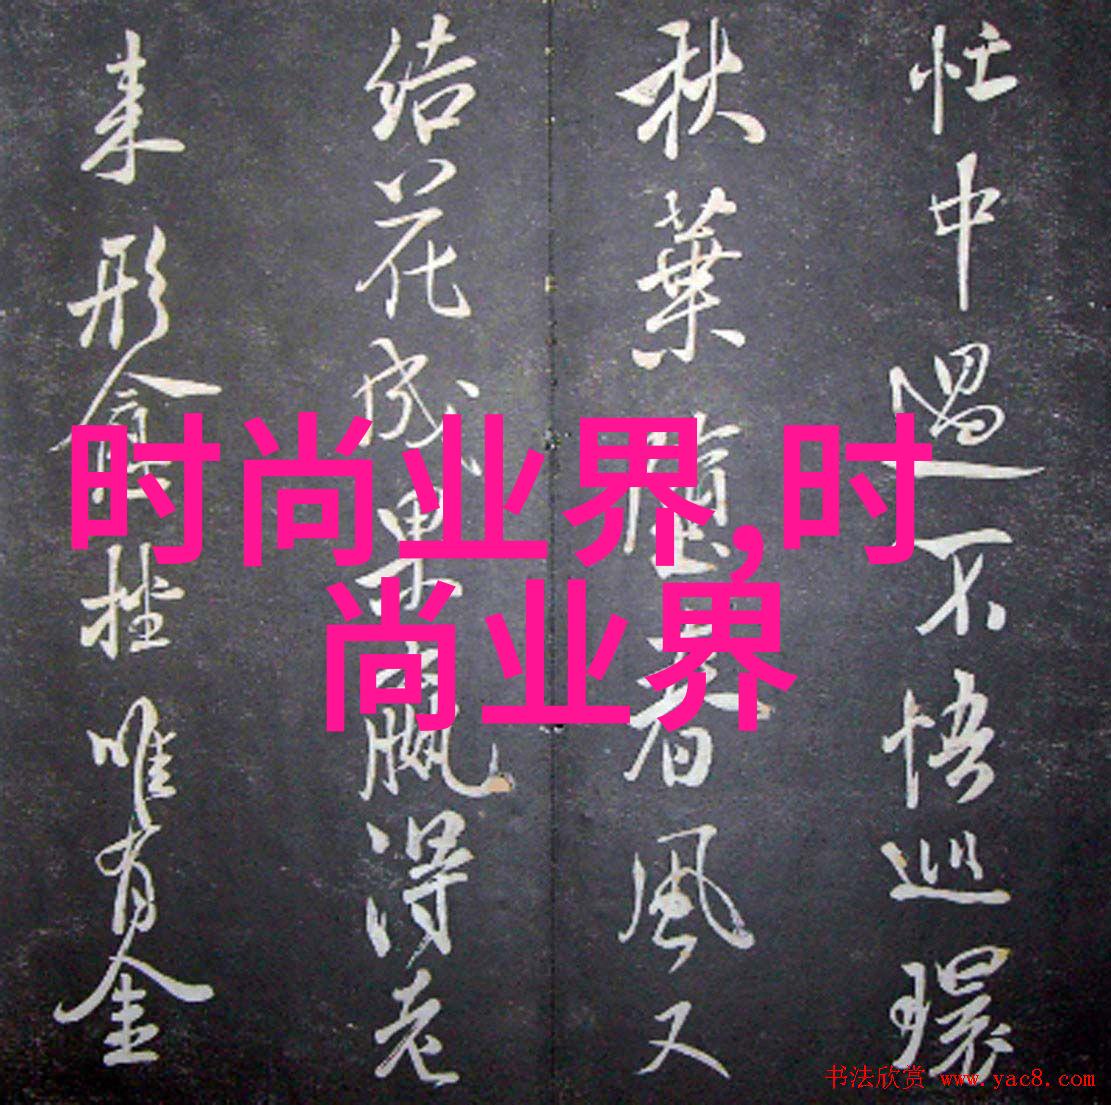 忙中過不悟巡環
秋葉春風又
結花成果贏得老
来形拙唯有金
时尚业界,时
尚业界
书法欣赏 www.yac8.com